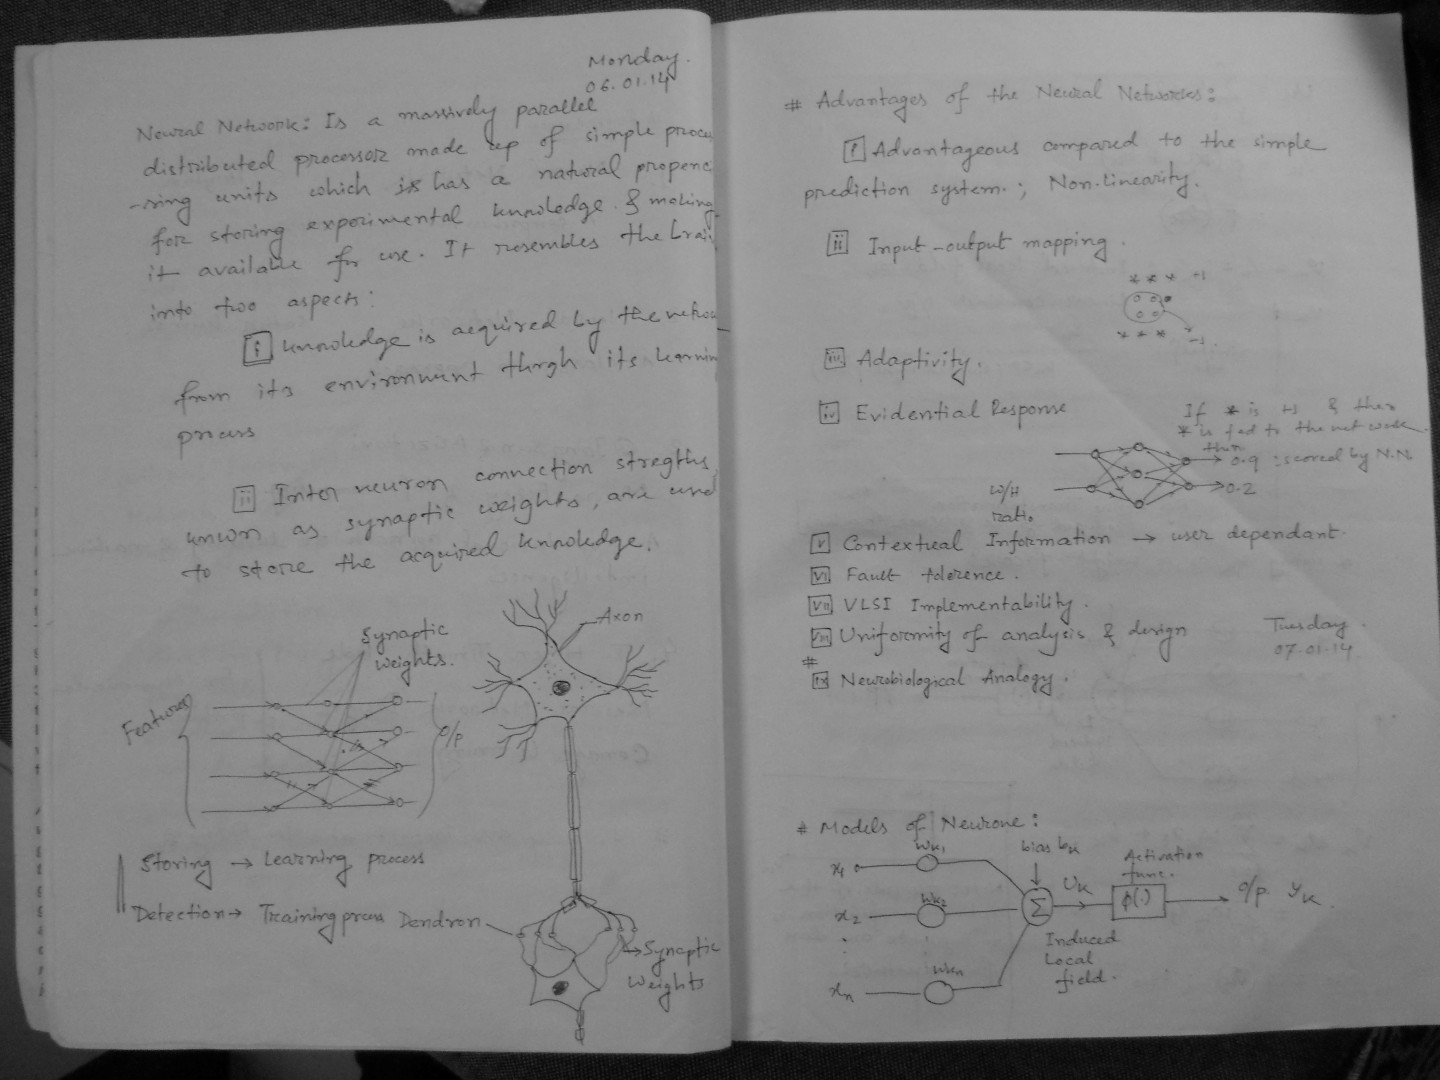 Monday.
06.01.14
Neural Network: Is a massively parallel
distributed processor made up of simple proces
-sing units which is has a natural propenc
for storing experimental knowledge & making
it available for use. It resembles the brai
into two aspects:
[i] knowledge is acquired by the netwo
from its environment thrgh its learnin
process
[ii] Inter neuron connection stregths,
known as synaptic weights, are used
to store the acquired knowledge.
Synaptic
weights.
Axon
Features
O/p
Storing → Learning process
Detection → Training process
Dendron
Synaptic
Weights
# Advantages of the Neural Networks:
[i] Advantageous compared to the simple
prediction system.; Non-linearity.
[ii] Input-output mapping.
* * * -1
* * * -1.
[iii] Adaptivity.
[iv] Evidential Response
If * is +s & then
* is fed to the network
then
0.9 : scored by N.N.
W/H
ratio
0.2
[v] Contextual Information → user dependant.
[vi] Fault tolerence.
[vii] VLSI Implementability.
[viii] Uniformity of analysis & design
Tuesday.
07.01.14
#
[ix] Neurobiological Analogy.
# Models of Neurone:
x1 wk1 bias bk Activation
func.
x2 wk2 Σ Uk φ(.) o/p. yk
Induced
Local
field.
xn wkn